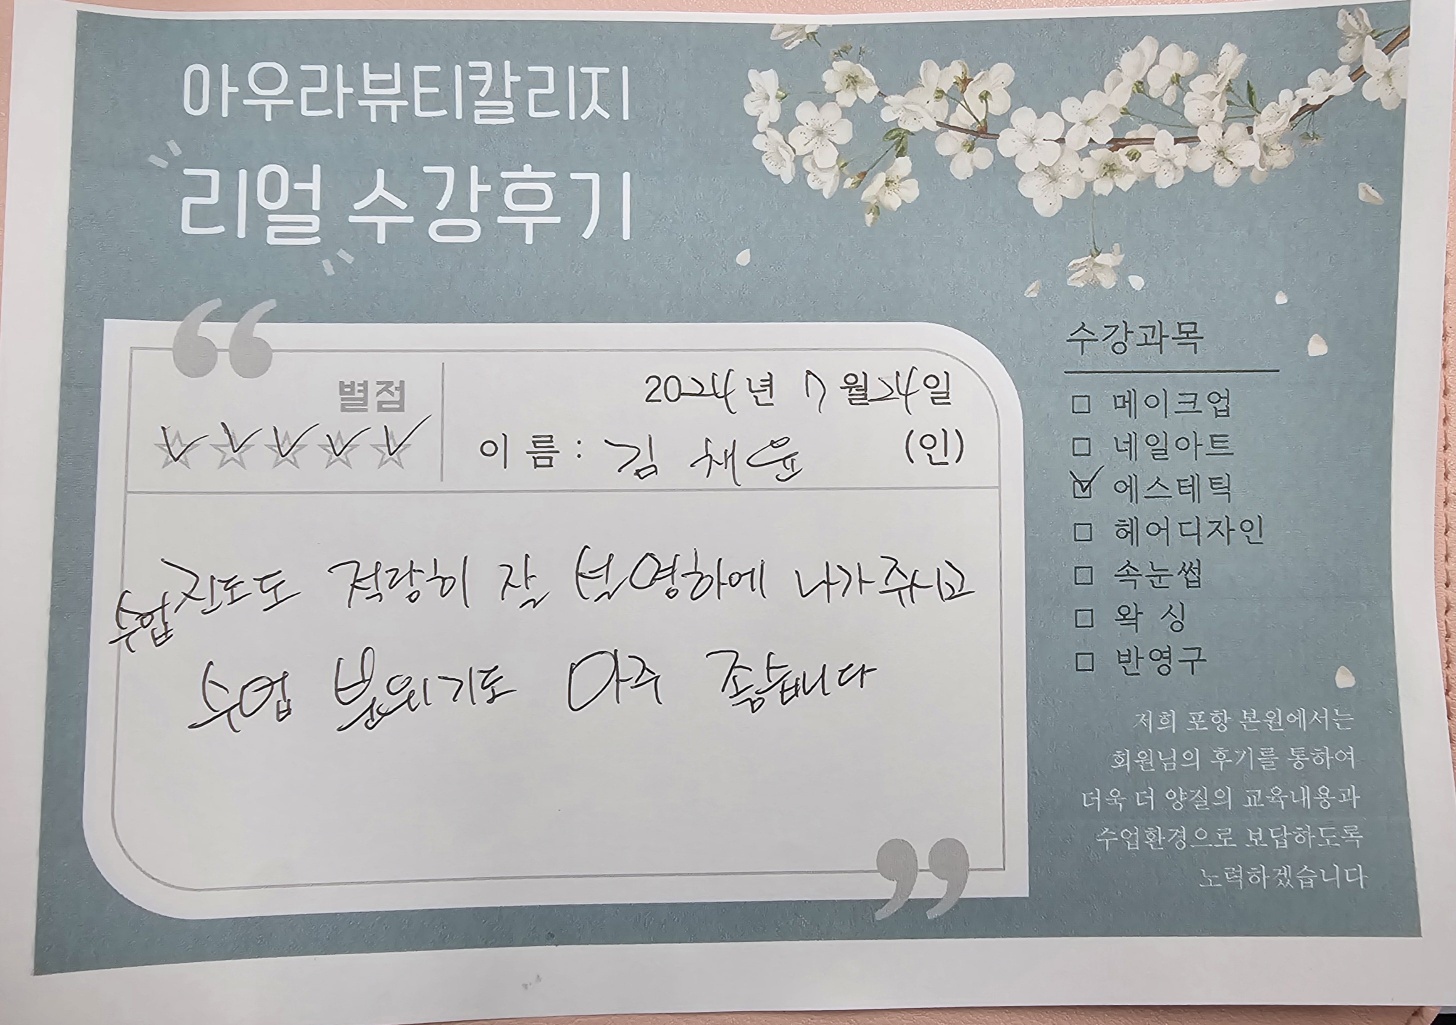 아우라뷰티칼리지
리얼 수강후기
별점
2024년 7월24일
이름: 김채윤 (인)
수업 진도도 적당히 잘 설명하에 나가주시고
수업 분위기도 아주 좋습니다
수강과목
메이크업
네일아트
에스테틱
헤어디자인
속눈썹
왁싱
반영구
저희 포항 본원에서는
회원님의 후기를 통하여
더욱 더 양질의 교육내용과
수업환경으로 보답하도록
노력하겠습니다